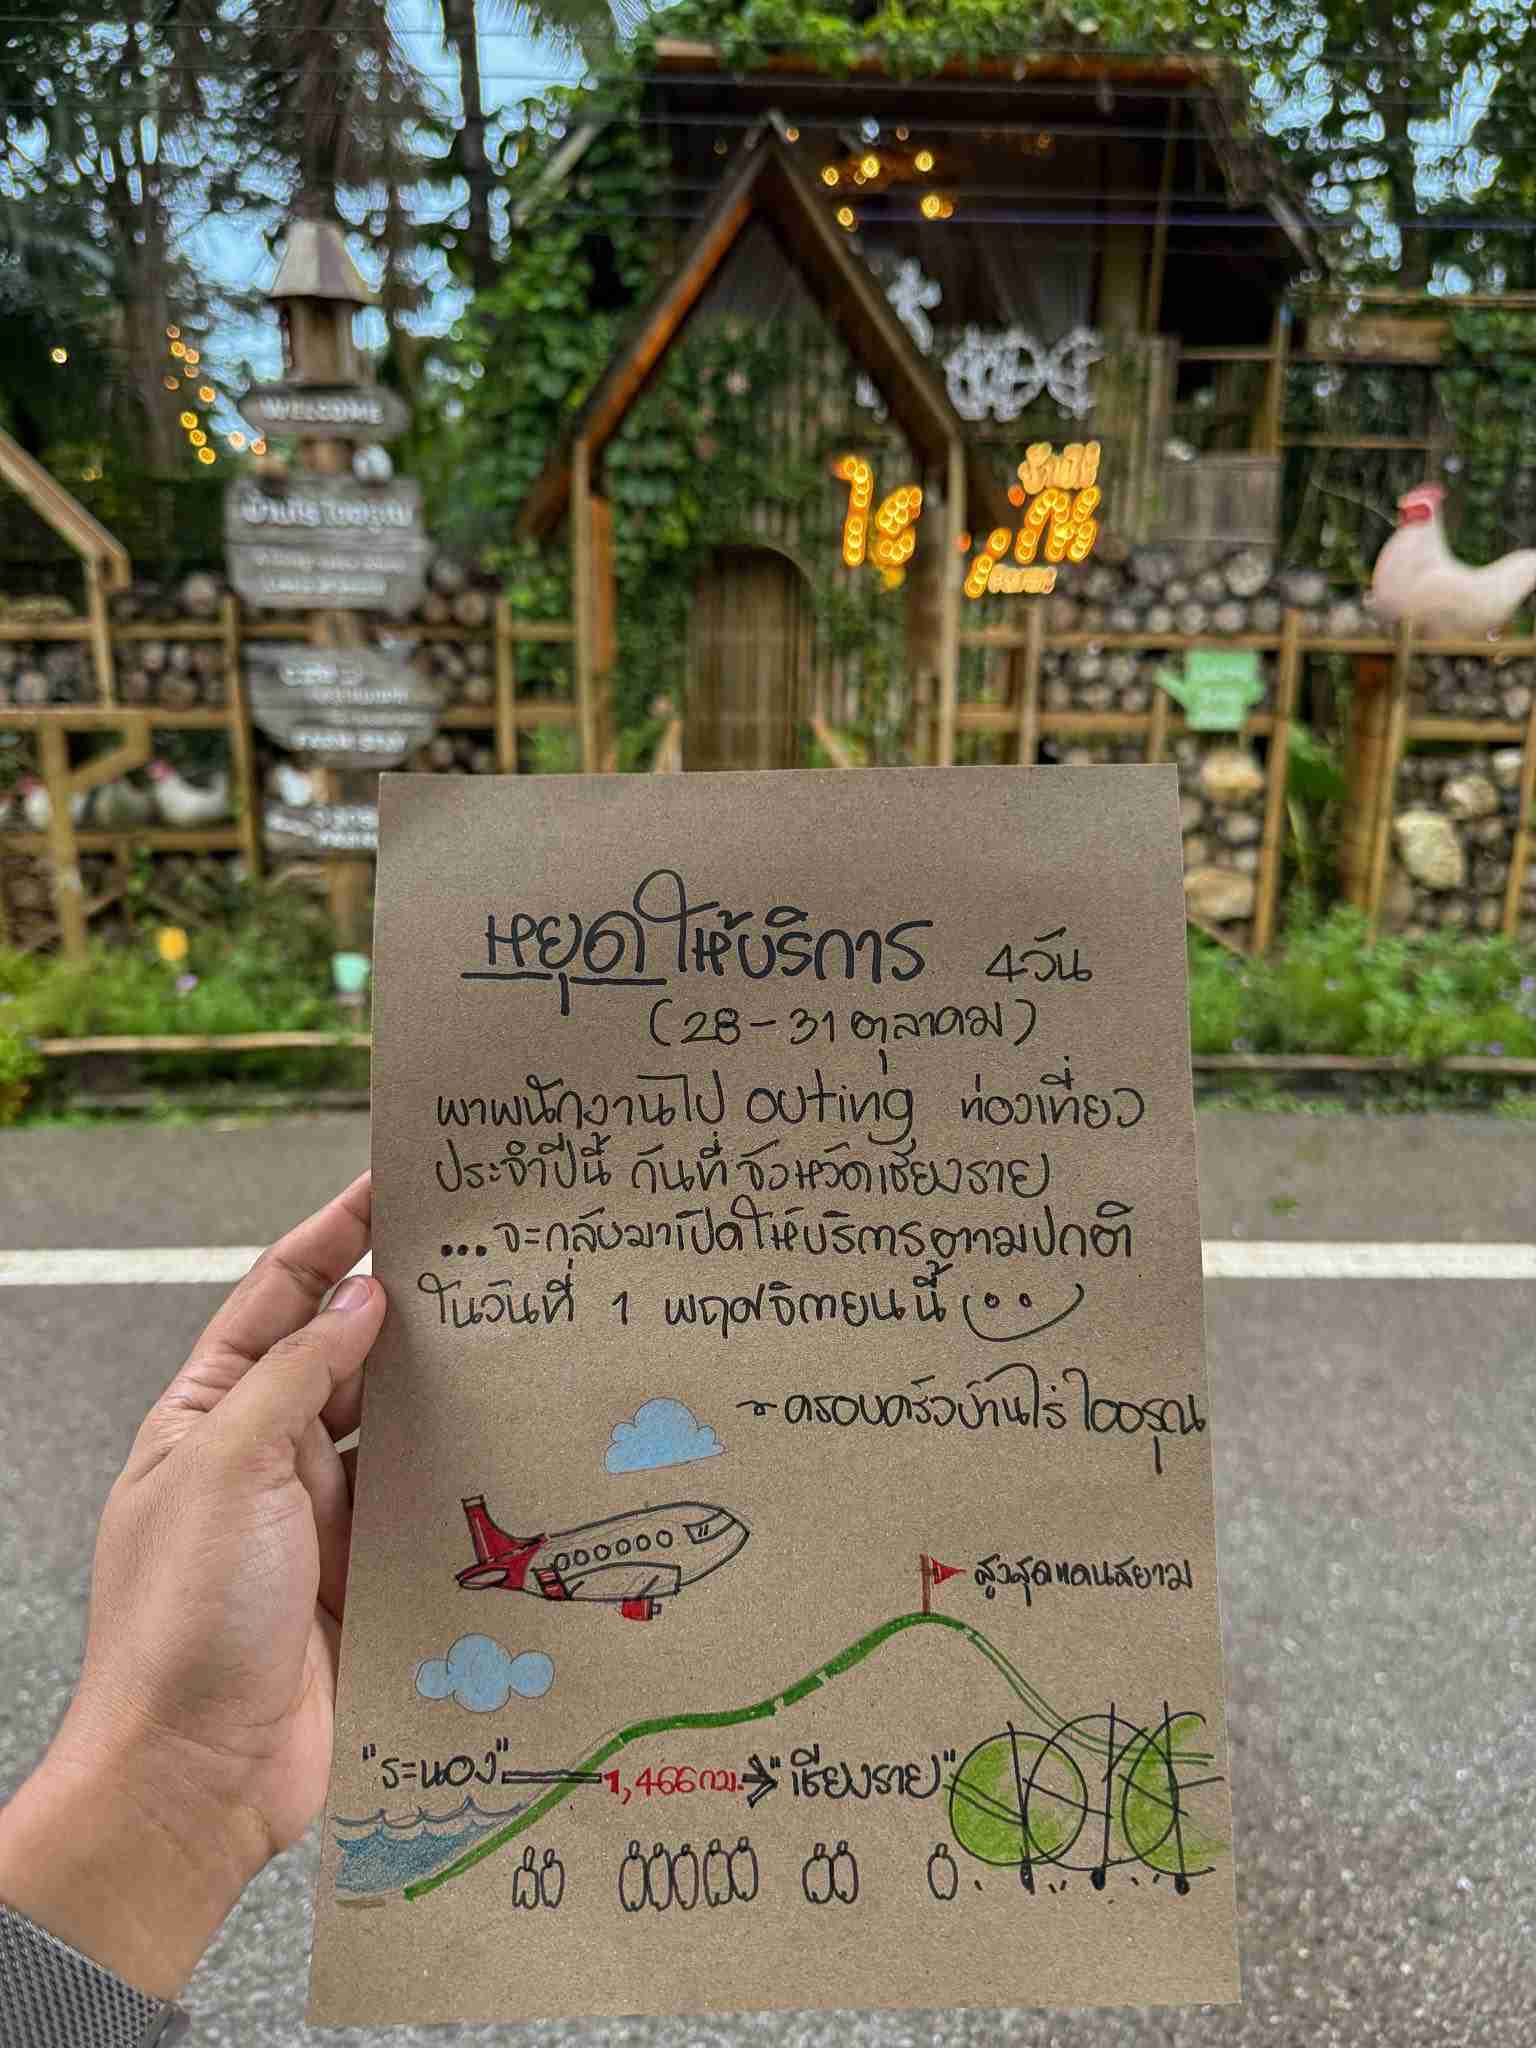 WELCOME
บ้านไร่ ไออรุณ
หยุดให้บริการ 4วัน
(28-31 ตุลาคม)
พาพนักงานไป outing ท่องเที่ยว
ประจำปีนี้ กันที่ จังหวัดเชียงราย
...จะกลับมาเปิดให้บริการตามปกติ
ในวันที่ 1 พฤศจิกายนนี้
~ครอบครัวบ้านไร่ ไออรุณ
สูงสุดแดนสยาม
"ระนอง" 1,466 กม. "เชียงราย"